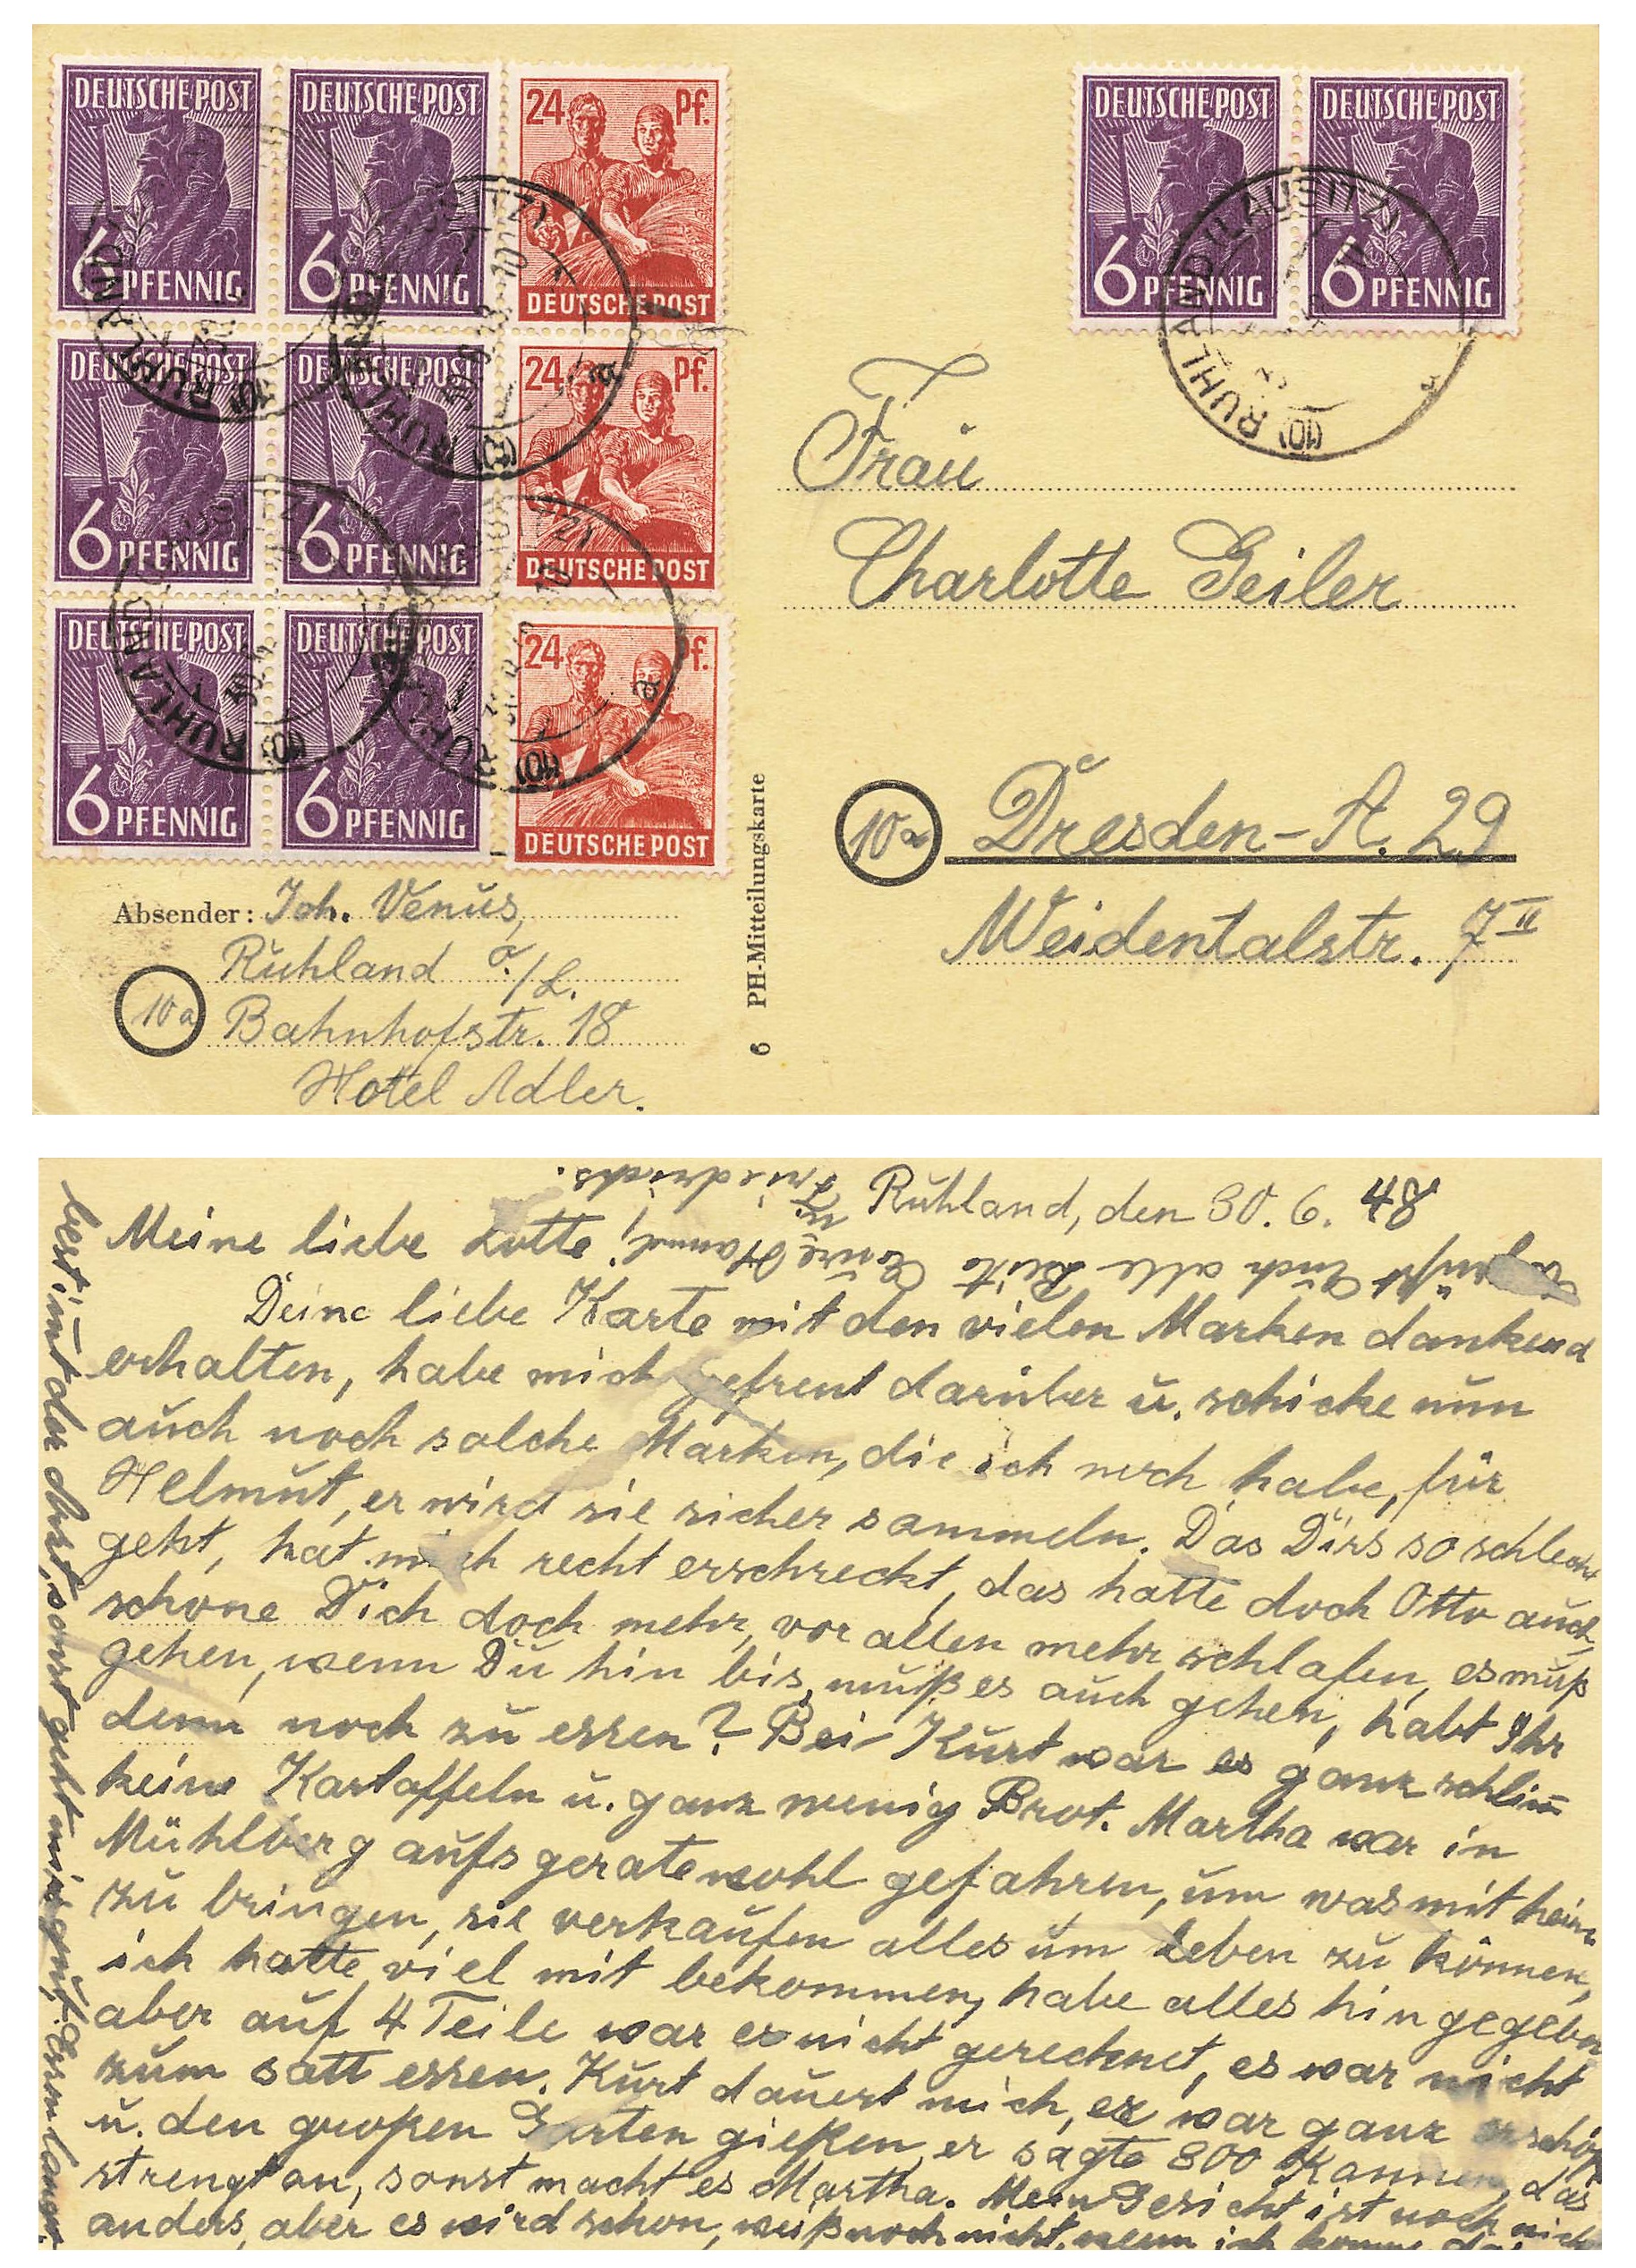 DEUTSCHE POST
6 PFENNIG
DEUTSCHE POST
6 PFENNIG
24 Pf.
DEUTSCHE POST
DEUTSCHE POST
6 PFENNIG
DEUTSCHE POST
6 PFENNIG
24 Pf.
DEUTSCHE POST
DEUTSCHE POST
6 PFENNIG
DEUTSCHE POST
6 PFENNIG
24 Pf.
DEUTSCHE POST
DEUTSCHE POST
6 PFENNIG
DEUTSCHE POST
6 PFENNIG
(10) RUHLAND (LAUSITZ)
a
Frau
Charlotte Geiler
10a Dresden-A. 29
Weidentalstr. 7 II
Absender: Joh. Venus,
Ruhland O./L.
10a Bahnhofstr. 18
Hotel Adler.
6 PH-Mitteilungskarte
Ruhland, den 30. 6. 48
Meine liebe Lotte!
Deine liebe Karte mit den vielen Marken dankend
erhalten, habe mich gefreut darüber u. schicke nun
auch noch solche Marken, die ich noch habe, für
Helmut, er wird sie sicher sammeln. Das Dirs so schlecht
geht, hat mich recht erschreckt, das hatte doch Otto auch,
schone Dich doch mehr, vor allen mehr schlafen, es muß
gehen, wenn Du hin bis, muß es auch gehen, habt Ihr
denn noch zu essen? Bei Kurt war es ganz schlimm
keine Kartoffeln u. ganz wenig Brot. Martha war in
Mühlberg aufs geratewohl gefahren, um was mit heim
zu bringen, sie verkaufen alles um Leben zu können,
ich hatte viel mit bekommen, habe alles hin gegeben
aber auf 4 Teile war es nicht gerechnet, es war nicht
zum satt essen. Kurt dauert mich, er war ganz erschöpf
u. den großen Garten gießen, er sagte 800 Kannen, das
strengt an, sonst macht es Martha. Mein Gesicht ist noch nich
anders, aber es wird schon, weiß noch nicht, wenn ich komme, das
best. mit der obst, sonst geht mirs gut. Essen langt.
grüßt Euch alle Beite Eure Hannel
u. Friedrichs.